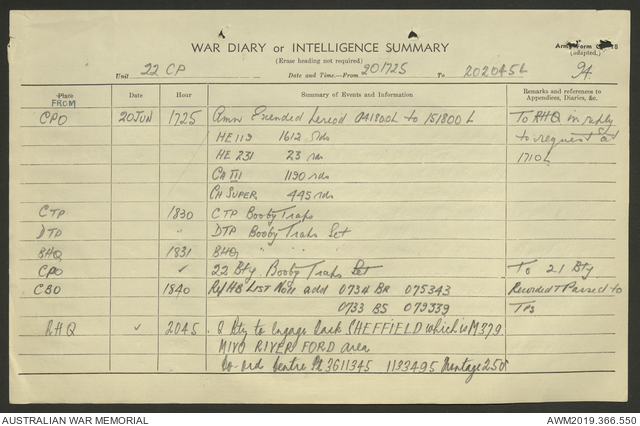 WAR DIARY or INTELLIGENCE SUMMARY
(Erase heading not required)
Army Form
(adapted.)
Unit 22 CP Date and Time—From 201725 To 202045L 94
Place Date Hour Summary of Events and Information Remarks and references to Appendices, Diaries, &c.
FROM
CPO 20 JUN 1725 Amn Expended period 041800L to 151800L To RHQ in reply
HE 119 1612 rds to request at
HE 231 23 rds 1710L
CH III 1190 rds
CH SUPER 445 rds
CTP 1830 CTP Booby Traps
DTP " DTP Booby Traps Set
BHQ 1831 BHQ " "
CPO ✓ 22 Bty Booby Traps Set To 21 Bty
CBO 1840 Ref HB LIST No add 0734 BR 075343 Recorded & Passed to
0733 BS 079339 TPs
RHQ ✓ 2045 Bty to Engage task SHEFFIELD which is M379
MIVO RIVER FORD area
Co-ord Centre Pt 3611345 1133495 Frontage 250
AUSTRALIAN WAR MEMORIAL AWM2019.366.550